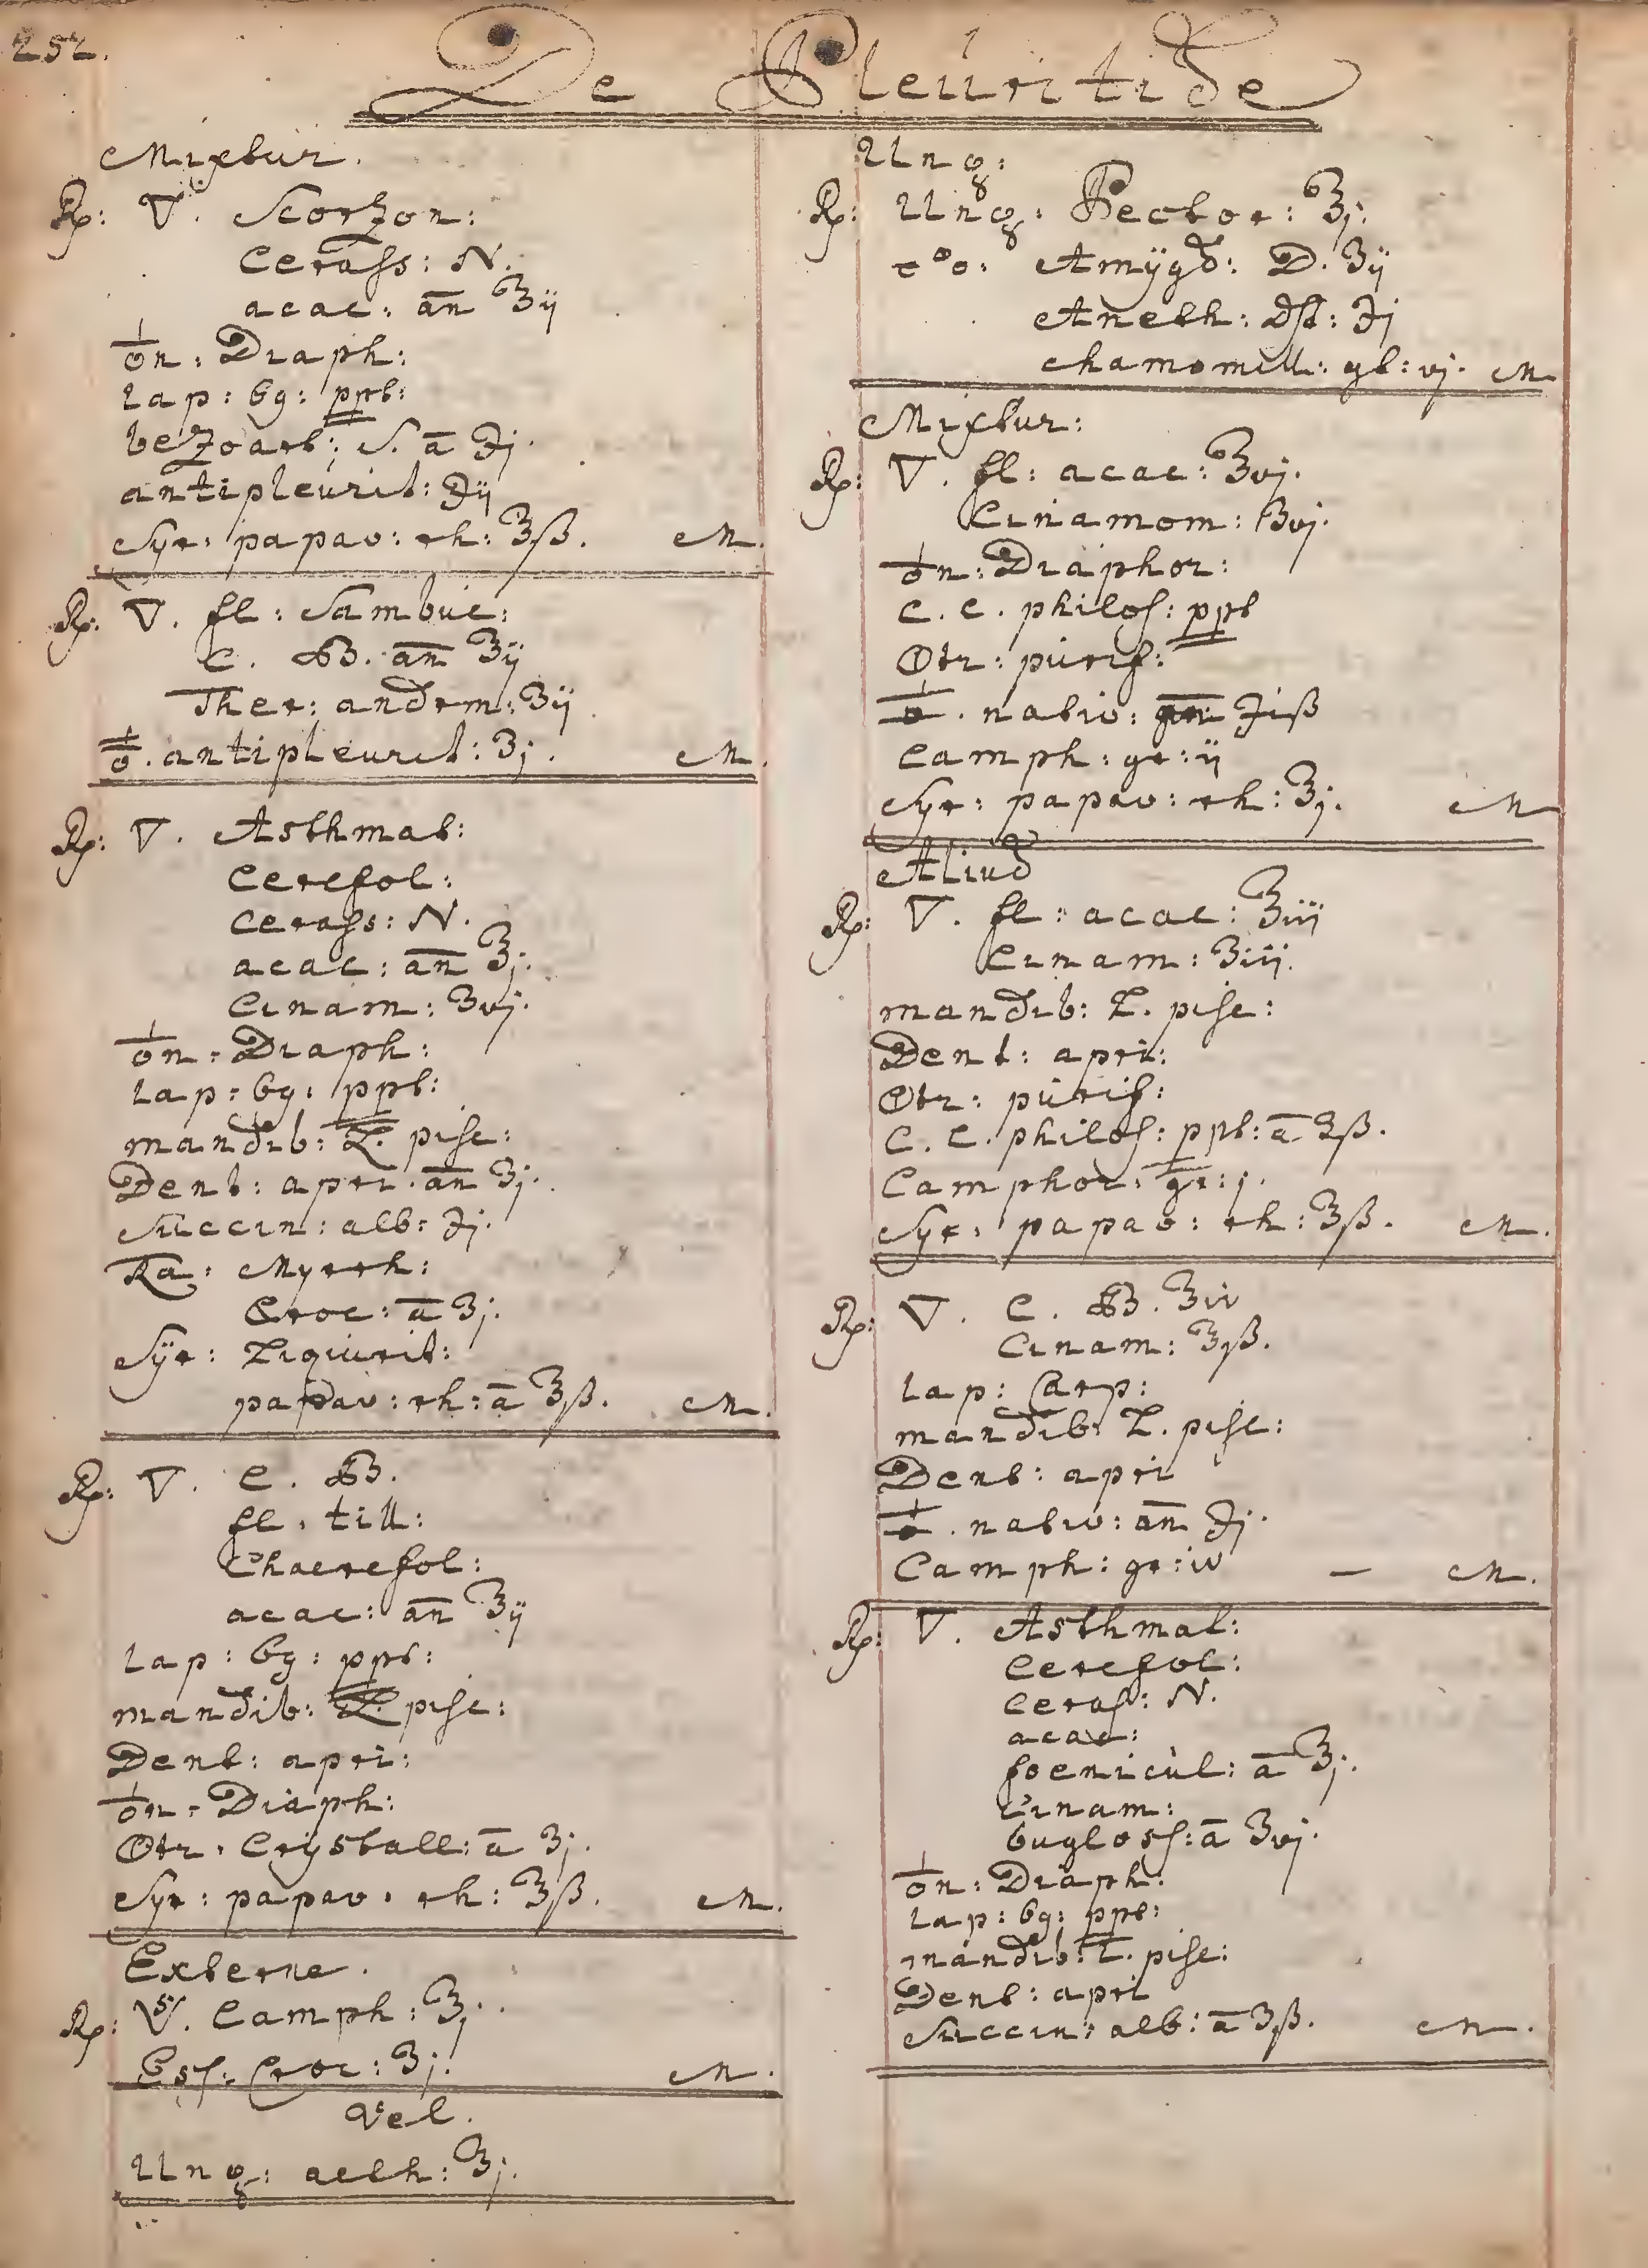 252.
De Pleuritide
Mixtur.
Rp: ▽. Scorzon:
Cerass: N.
acac: an ℥ij
♁n: Diaph:
lap: 69: ppt:
bezoart: S. a ℈j.
antipleurit: ℈ij
Syr: papav: rh: ℥ß. M.
Rp: ▽. fl: Sambuc:
C. B. an ℥ij
Ther: androm: ʒij
antipleurit: ʒj. M.
Rp: ▽. Asthmat:
Cerefol:
Cerass: N.
acac: an ℥j.
Cinam: ʒvj.
♁n: Diaph:
lap: 69: ppt:
mandib: L. pisc:
Dent: apri. an ʒj.
Succin: alb: ℈j.
Ra: Myrrh:
Croc: a ʒj.
Syr: Liquirit:
papav: rh: a ℥ß. M.
Rp: ▽. C. B.
fl. till:
Chaerefol:
acac: an ℥ij
lap: 69: ppt:
mandib: L. pisc:
Dent: apri:
♁n: Diaph:
Otr. Crystall: a ʒj.
Syr: papav. rh: ℥ß. M.
Externe.
Rp: V. Camph: ℥j.
Ess: Croc: ʒj. M.
Vel.
Ung: aeth: ℥j.
Ung:
Rp: Ung: Pector: ℥j.
Amygd: D. ʒij
Aneth: dst: ℈j
chamomill: gt: vj. M
Mixtur:
Rp: ▽. fl: acac: ℥vj.
Cinamom: ʒvj.
♁n: Diaphor:
C. C. philos: ppt
Otr: purif:
nativ: ℈iß
Camph: gr: ij
Syr: papav: rh: ℥j. M
Aliud
Rp: ▽. fl: acac: ℥iij
Cinam: ʒiij.
mandib: L. pisc:
Dent: apri:
Otr: purif:
C. C. philos: ppt: a ʒß.
Camphor: gr: j.
Syr: papav: rh: ℥ß. M.
Rp: ▽. C. B. ℥iv
Cinam: ℥ß.
lap: Carp:
mandib: L. pisc:
Dent: apri
nativ: an ℈j.
Camph: gr: iv — M.
Rp: ▽. Asthmat:
Cerefol:
Ceras: N.
acac:
foenicul: a ℥j.
Cinam:
bugloss: a ʒvj.
♁n: Diaph:
lap: 69: ppt:
mandib: L. pisc:
Dent: apri
Succin: alb: a ʒß. M.